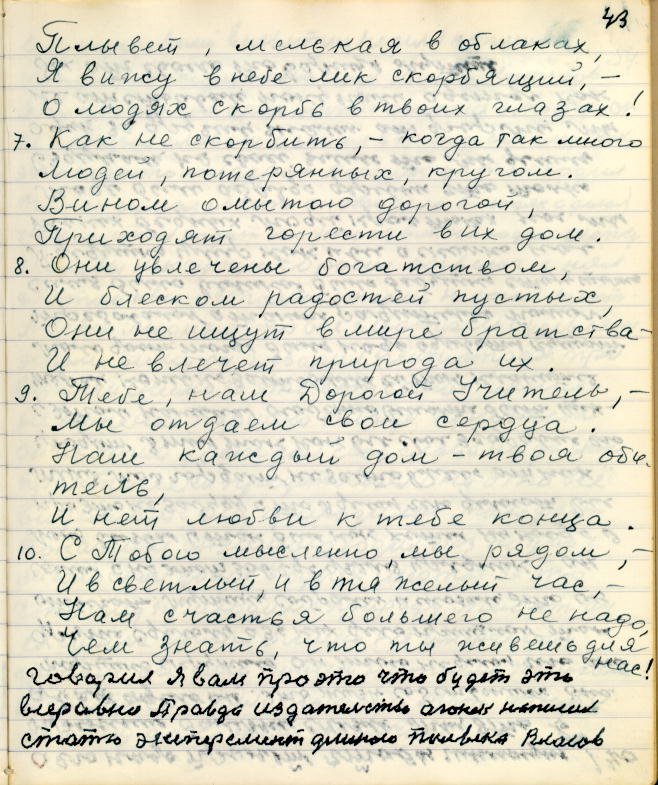 43
Плывет, мелькая в облаках,
Я вижу в небе лик скорбящий, –
О людях скорбь в твоих глазах!
7. Как не скорбить, – когда так много
Людей, потерянных, кругом.
Вином омытою дорогой,
Приходят горести в их дом.
8. Они увлечены богатством,
И блеском радостей пустых,
Они не ищут в мире братства –
И не влечет природа их.
9. Тебе, наш Дорогой Учитель, –
Мы отдаем свои сердца.
Наш каждый дом – твоя оби-
тель,
И нет любви к тебе конца.
10. С Тобою мысленно, мы рядом, –
И в светлый, и в тяжелый час, –
Нам счастья большего не надо,
Чем знать, что ты живешь для
нас!
говарил я вам про это что будет это
Правда издателство написал
статю эксперемент длиною Власов